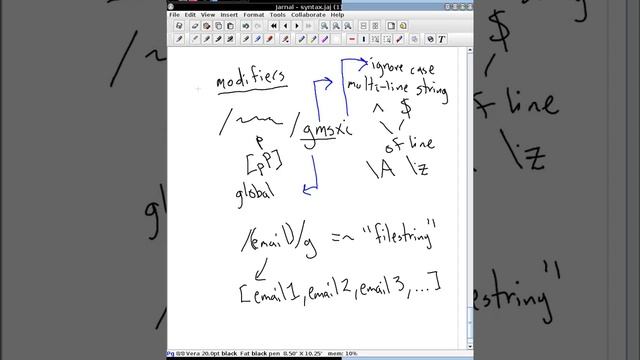 Jarnal - syntax.jaj (1)
File Edit View Insert Format Tools Collaborate Help
modifiers
ignore case
multi-line string
^ $
/ /gmsxi
of line
p
[pP]
\A \z
global
/(email)/g =~ "filestring"
[email1, email2, email3, ...]
Pg 8/8 Vera 20.0pt black Fat black pen 8.50" X 10.25" mem: 10%